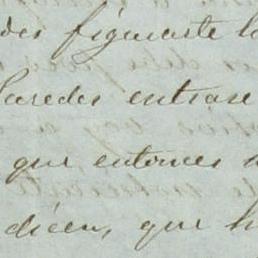 des figuraste l
Paredes entrase
que entonces
dicen, que h